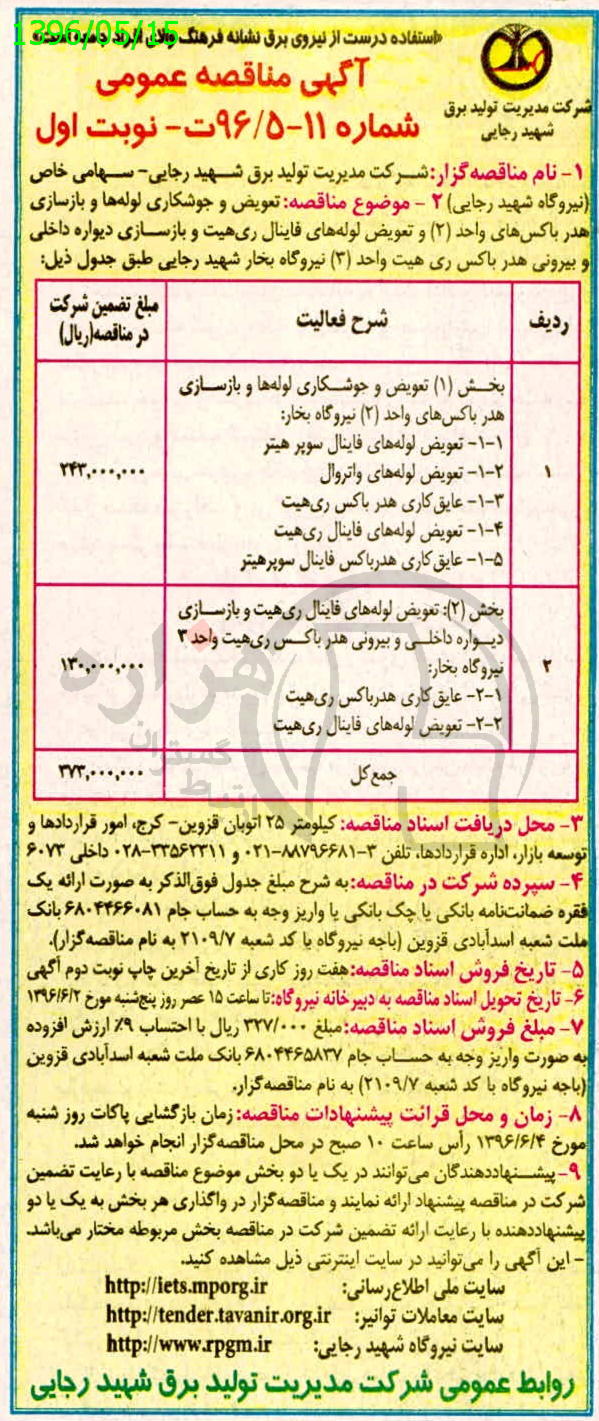 1396/05/15
«استفاده درست از نیروی برق نشانه فرهنگ والای افراد جامعه است»
شرکت مدیریت تولید برق
شهید رجایی
آگهی مناقصه عمومی
شماره ۱۱-۹۶/۵ت- نوبت اول
۱- نام مناقصه‌گزار: شرکت مدیریت تولید برق شهید رجایی- سهامی خاص
(نیروگاه شهید رجایی) ۲ - موضوع مناقصه: تعویض و جوشکاری لوله‌ها و بازسازی
هدر باکس‌های واحد (۲) و تعویض لوله‌های فاینال ری‌هیت و بازسازی دیواره داخلی
و بیرونی هدر باکس ری هیت واحد (۳) نیروگاه بخار شهید رجایی طبق جدول ذیل:
ردیف
شرح فعالیت
مبلغ تضمین شرکت
در مناقصه(ریال)
۱
بخش (۱) تعویض و جوشکاری لوله‌ها و بازسازی
هدر باکس‌های واحد (۲) نیروگاه بخار:
۱-۱- تعویض لوله‌های فاینال سوپر هیتر
۱-۲- تعویض لوله‌های واتروال
۱-۳- عایق‌کاری هدر باکس ری‌هیت
۱-۴- تعویض لوله‌های فاینال ری‌هیت
۱-۵- عایق‌کاری هدرباکس فاینال سوپرهیتر
۲۴۳,۰۰۰,۰۰۰
۲
بخش (۲): تعویض لوله‌های فاینال ری‌هیت و بازسازی
دیواره داخلی و بیرونی هدر باکس ری‌هیت واحد ۳
نیروگاه بخار:
۲-۱- عایق‌کاری هدرباکس ری‌هیت
۲-۲- تعویض لوله‌های فاینال ری‌هیت
۱۳۰,۰۰۰,۰۰۰
جمع کل
۳۷۳,۰۰۰,۰۰۰
هزاره
گستران
ارتباط
۳- محل دریافت اسناد مناقصه: کیلومتر ۲۵ اتوبان قزوین- کرج، امور قراردادها و
توسعه بازار، اداره قراردادها، تلفن ۳-۸۸۷۹۶۶۸۱-۰۲۱ و ۳۳۵۶۲۳۱۱-۰۲۸ داخلی ۶۰۷۳
۴- سپرده شرکت در مناقصه: به شرح مبلغ جدول فوق‌الذکر به صورت ارائه یک
فقره ضمانت‌نامه بانکی یا چک بانکی یا واریز وجه به حساب جام ۶۸۰۴۴۶۶۰۸۱ بانک
ملت شعبه اسدآبادی قزوین (باجه نیروگاه با کد شعبه ۲۱۰۹/۷ به نام مناقصه‌گزار).
۵- تاریخ فروش اسناد مناقصه: هفت روز کاری از تاریخ آخرین چاپ نوبت دوم آگهی
۶- تاریخ تحویل اسناد مناقصه به دبیرخانه نیروگاه: تا ساعت ۱۵ عصر روز پنج‌شنبه مورخ ۱۳۹۶/۶/۲
۷- مبلغ فروش اسناد مناقصه: مبلغ ۳۲۷/۰۰۰ ریال با احتساب ۹٪ ارزش افزوده
به صورت واریز وجه به حساب جام ۶۸۰۴۴۶۵۸۳۷ بانک ملت شعبه اسدآبادی قزوین
(باجه نیروگاه با کد شعبه ۲۱۰۹/۷) به نام مناقصه‌گزار.
۸- زمان و محل قرائت پیشنهادات مناقصه: زمان بازگشایی پاکات روز شنبه
مورخ ۱۳۹۶/۶/۴ رأس ساعت ۱۰ صبح در محل مناقصه‌گزار انجام خواهد شد.
۹- پیشنهاددهندگان می‌توانند در یک یا دو بخش موضوع مناقصه با رعایت تضمین
شرکت در مناقصه پیشنهاد ارائه نمایند و مناقصه‌گزار در واگذاری هر بخش به یک یا دو
پیشنهاددهنده با رعایت ارائه تضمین شرکت در مناقصه بخش مربوطه مختار می‌باشد.
- این آگهی را می‌توانید در سایت اینترنتی ذیل مشاهده کنید.
سایت ملی اطلاع‌رسانی: http://iets.mporg.ir
سایت معاملات توانیر: http://tender.tavanir.org.ir
سایت نیروگاه شهید رجایی: http://www.rpgm.ir
روابط عمومی شرکت مدیریت تولید برق شهید رجایی